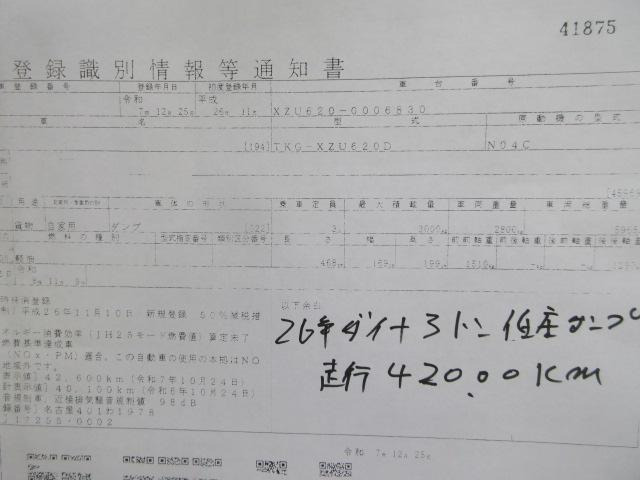 41875
登録識別情報等通知書
車登録番号 登録年月日 初度登録年月 車台番号
令和 平成
7年12月25日 26年11月 XZU620-0006830
車名 型式 原動機の型式
[194] TKG-XZU620D N04C
用途 自家用・事業用の別 車体の形状 乗車定員 最大積載量 車両重量 車両総重量
貨物 自家用 ダンプ 3人 3000kg 2800kg
燃料の種別 型式指定番号 類別区分番号 長さ 幅 高さ 前前軸重 前後軸重 後前軸重 後後軸重
軽油 468cm 169cm 199cm 1510kg
令和
以下余白
制)平成26年11月10日 新規登録 50%減税措
ネルギー消費効率(JH25モード燃費値)算定未了
燃費基準達成車
(NOx・PM)適合、この自動車の使用の本拠はNO
地域外です。
表示値]42,600km(令和7年10月24日)
計表示値]40,100km(令和6年10月24日)
音規制車、近接排気騒音規制値 98dB
録番号]名古屋401わ1978
]17255-0002
26年ダイナ3トン低床ダンプ
走行42000Km
令和 7年12月25日